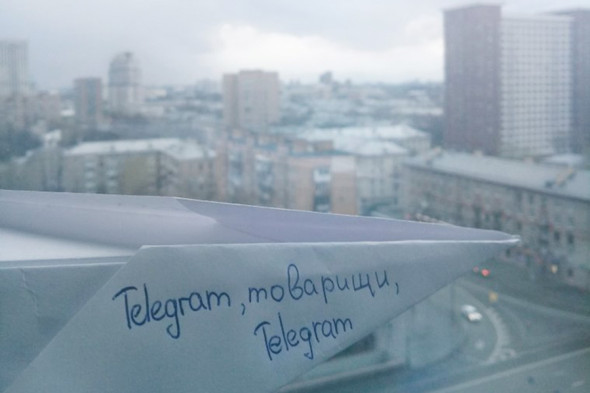 Telegram, товарищи,
Telegram